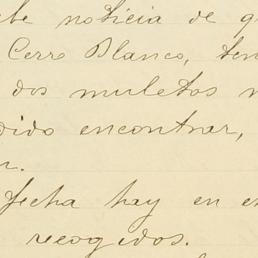 be noticia de q
Cerro Blanco, ten
dos muletos
dido encontrar,
n.
fecha hay en e
recogidos.